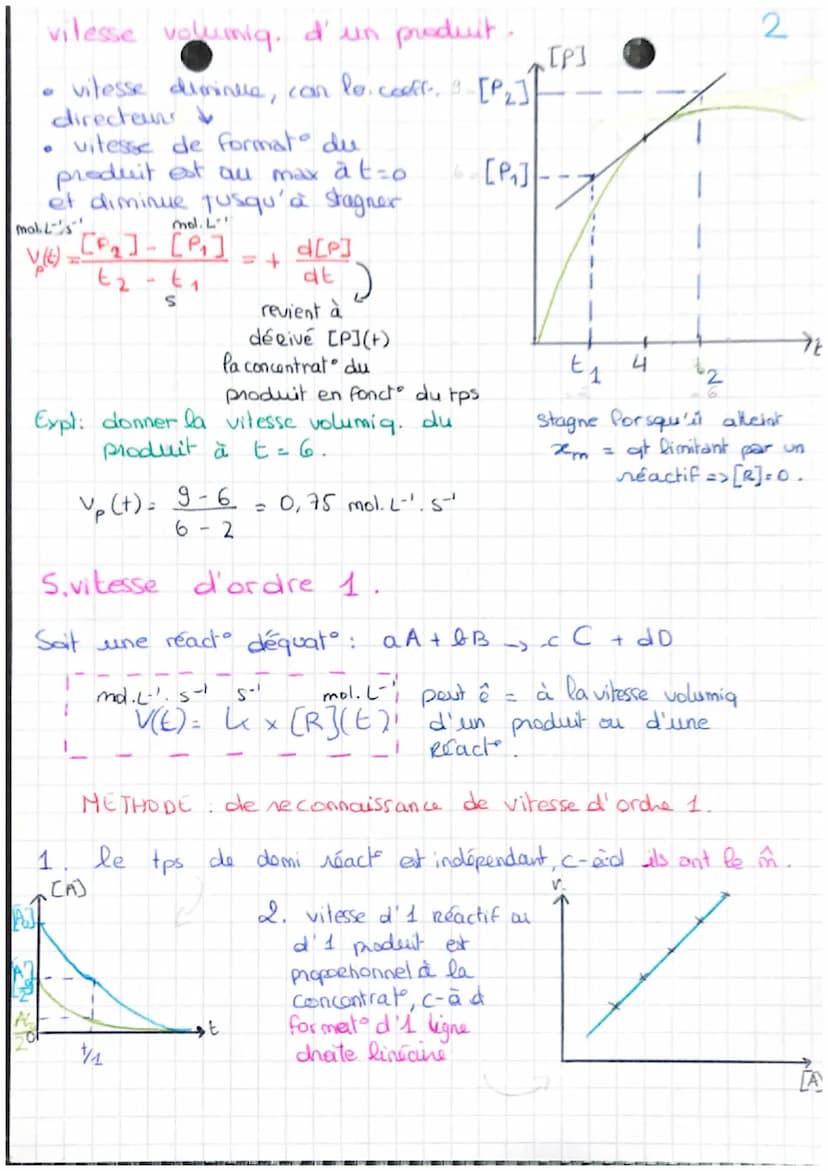 2
vitesse volumiq. d'un produit.
• vitesse diminue, car le coeff.
directeur ↓
• vitesse de format° du
produit est au max à t=0
et diminue jusqu'à stagner
mol.L⁻¹.s⁻¹ mol.L⁻¹
Vp(t) = [P₂] - [P₁] / t₂ - t₁ = + d[P] / dt
s
revient à
dérivé [P](t)
la concentrat° du
produit en fonct° du tps
[P]
[P₂]
[P₁]
t₁ 4 t₂ t
6
stagne lorsqu'il atteint
xm = qt limitant par un
réactif => [R]=0.
Expl: donner la vitesse volumiq. du
produit à t = 6.
Vp(t) = 9 - 6 / 6 - 2 = 0,75 mol.L⁻¹.s⁻¹
5. vitesse d'ordre 1.
Soit une réact° d'équat° : aA + bB → cC + dD
mol.L⁻¹.s⁻¹ s⁻¹ mol.L⁻¹
V(t) = k × [R](t)
peut ê = à la vitesse volumiq
d'un produit ou d'une
réact°.
METHODE : de reconnaissance de vitesse d'ordre 1.
1. le tps de demi réact° est indépendant, c-à-d ils ont le m̂.
[A]
[A₀]
t
2. vitesse d'1 réactif ou
d'1 produit est
proportionnel à la
concentrat°, c-à d
format° d'1 ligne
droite linéaire
v.
[A]